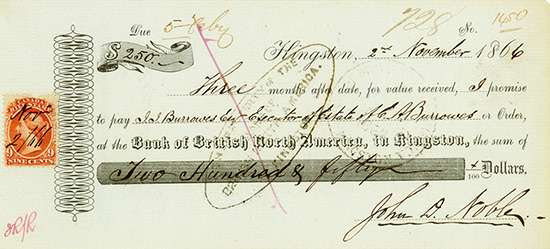 Due 5 Feby 728 No. 1450
$ 250- Kingston, 2nd November 1866
Three months after date, for value received, I promise
to pay J.J. Burrowes Esq Executor of Estate of C.A. Burrowes or Order,
at the Bank of British North America, in Kingston, the sum of
Two Hundred & fifty x/100 Dollars.
John D. Noble
Nov
2/66
9 NINE CENTS 9